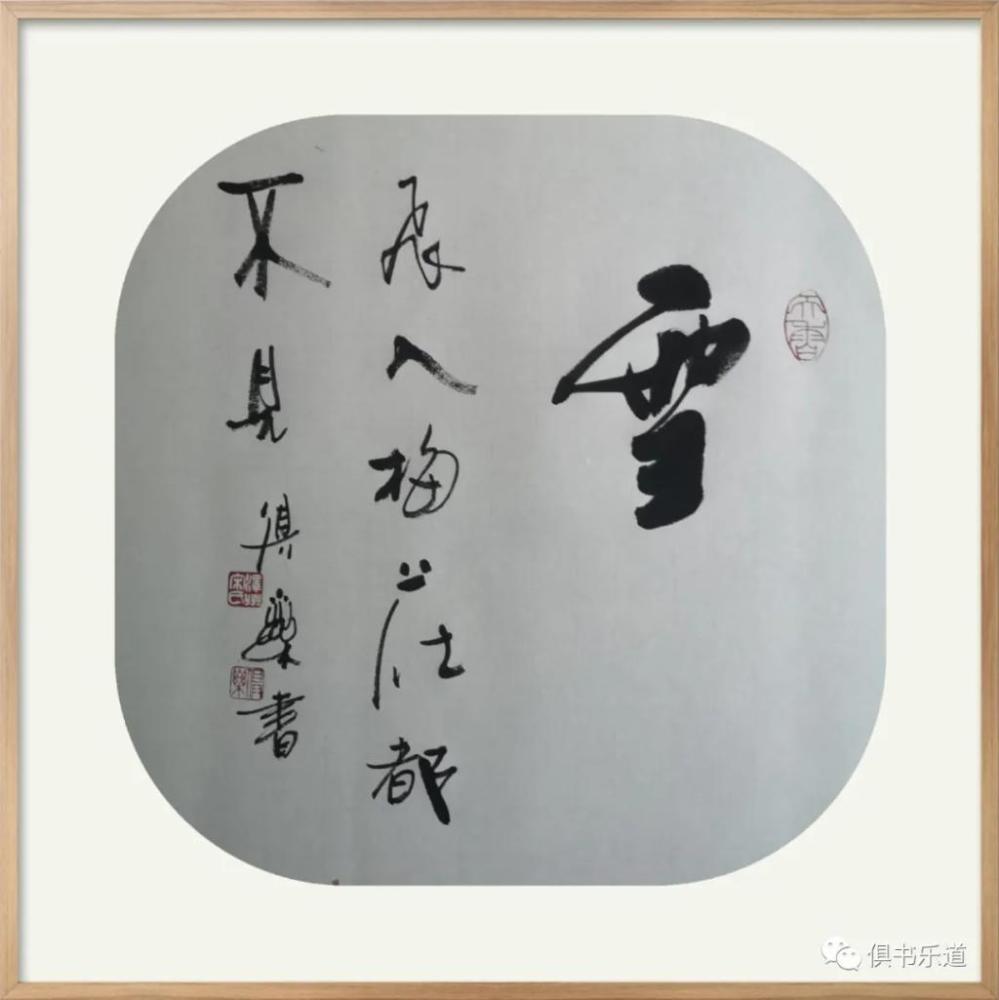 雪
飛入梅花都
不見 俱樂書
俱书乐道